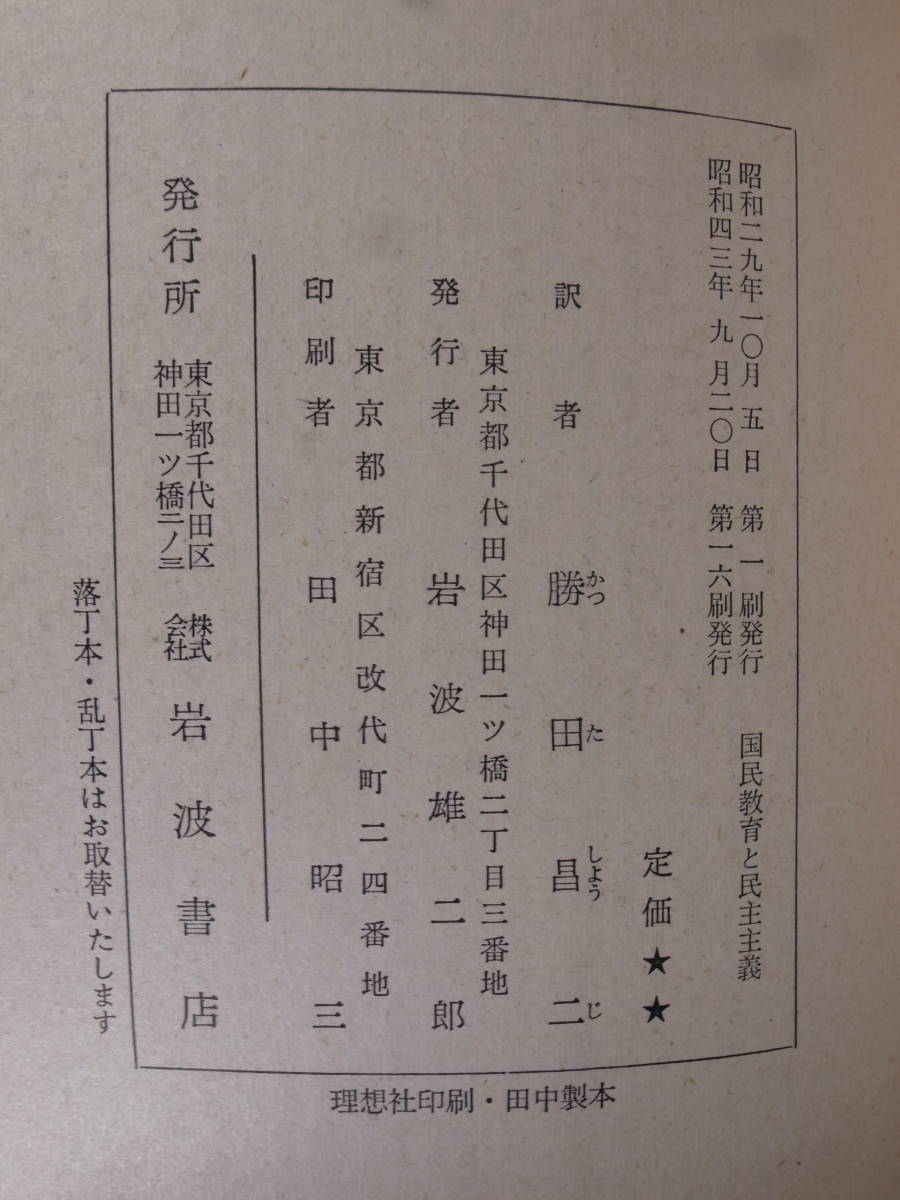 昭和二九年一〇月 五日 第 一 刷発行 国民教育と民主主義
昭和四三年 九 月二〇日 第一六刷発行
定価★★
訳者 勝田昌二
かつ た しよう じ
東京都千代田区神田一ツ橋二丁目三番地
発行者 岩波雄二郎
東京都新宿区改代町二四番地
印刷者 田中昭三
発行所 東京都千代田区
神田一ツ橋二ノ三
株式
会社
岩波書店
落丁本・乱丁本はお取替いたします
理想社印刷・田中製本